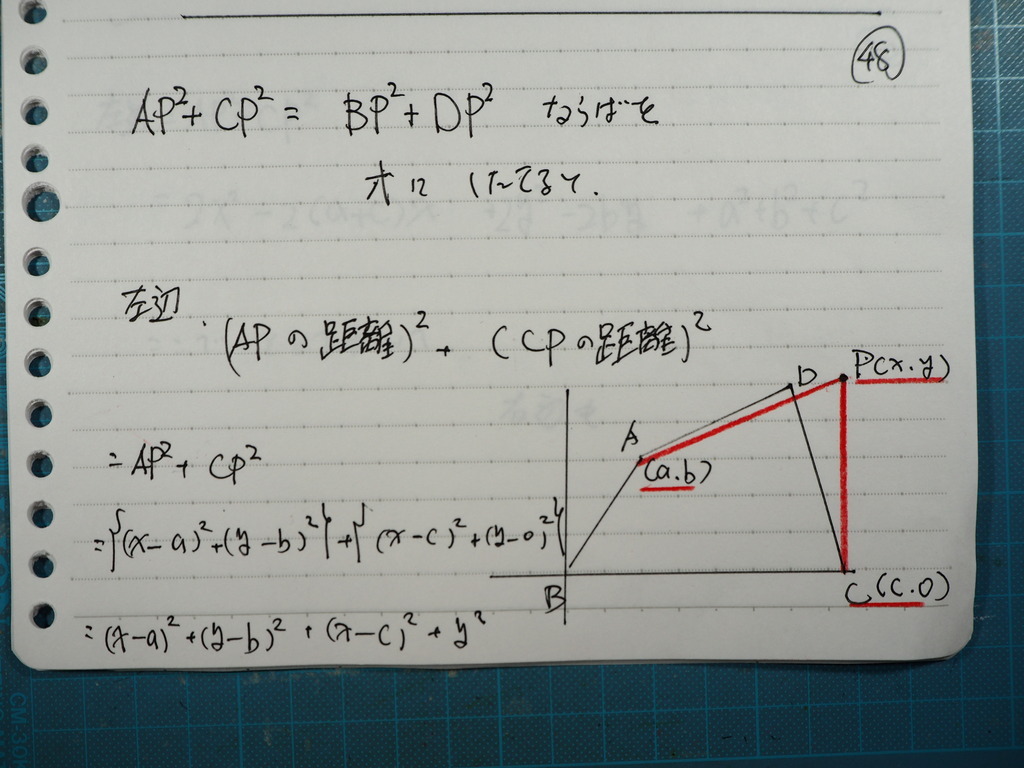 48
AP²+CP² = BP²+DP² ならばを
式に したてると.
左辺
(APの距離)² + (CPの距離)²
= AP²+ CP²
={(x-a)²+(y-b)²}+{(x-c)²+(y-0)²}
= (x-a)²+(y-b)² + (x-c)² + y²
D P(x.y)
A
(a.b)
B C(c.0)